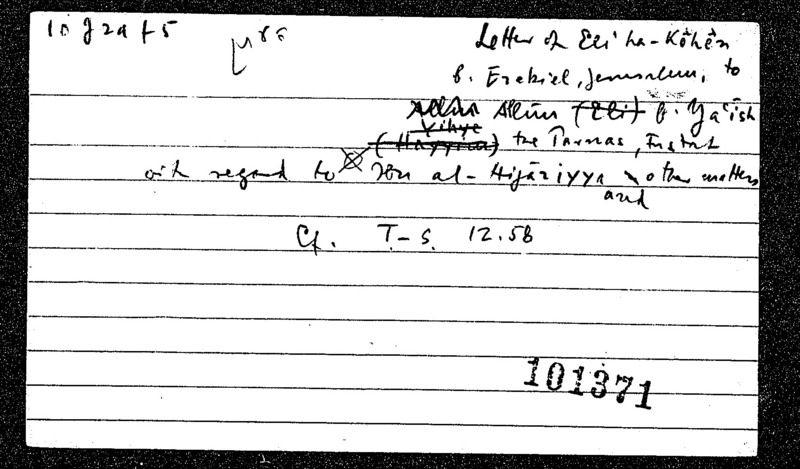 10 J 29 f 5
Letter of Eli ha-Kōhēn
b. Ezekiel, Jerusalem, to
Allūn (Eli) b. Ya'ish
Yihye
(Hayyim) the Parnas, Fustat
with regard to Ibn al-Hijāziyya and other matters
Cf. T-S. 12.58
101371